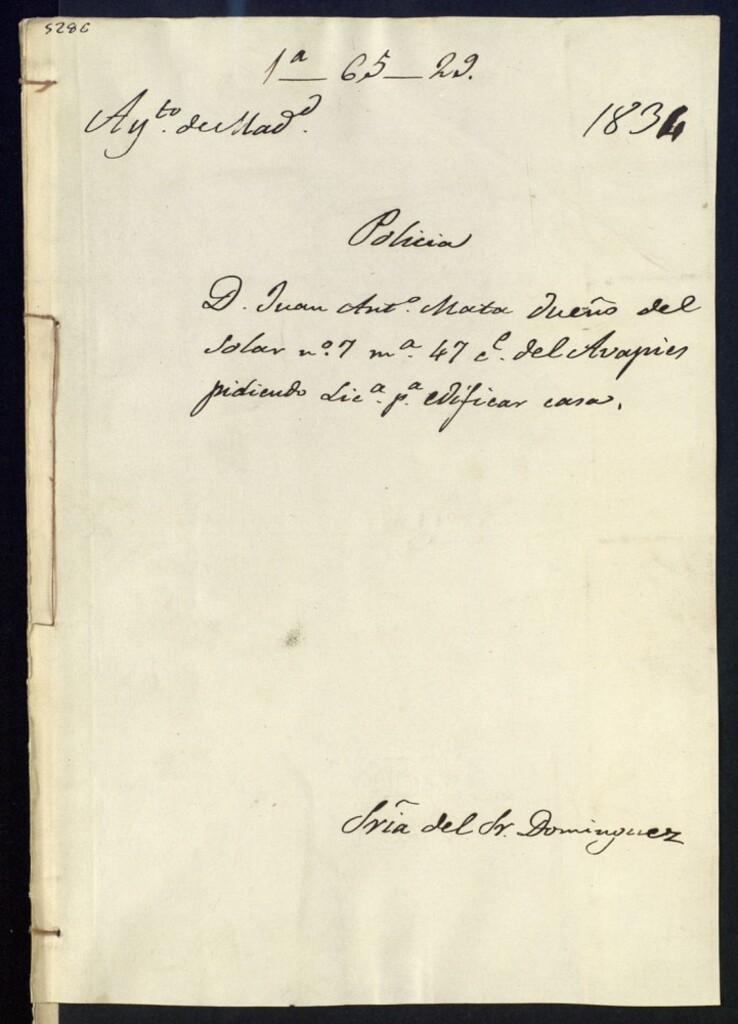 5286
1ª — 65 — 29.
Ayto. de Madd. 1834
Policia
D. Juan Anto. Mata Dueño del
Solar nº. 7 mª. 47 ce. del Avapies
pidiendo Lica. pª. edificar casa.
Sría del Sr. Dominguez